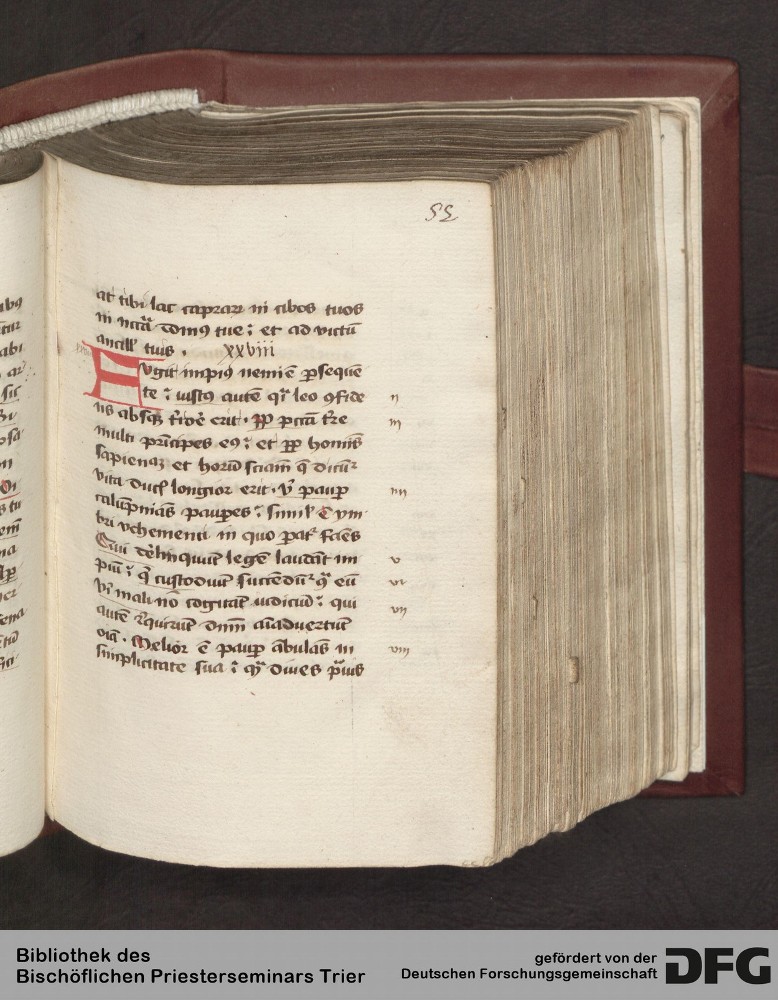 55
at tibi lac caprarū in cibos tuos
in nccā domꝰ tue ; et ad victū
ancill' tuis . xxviii
Fugit impiꝰ nemīe ꝑsequē
te ; iustꝰ autē q̄i leo ꝯfide
ns absqꝫ t̄roē erit . Pp̄ pccā tr̄e
multi pn̄cipes eꝰ ; et pp̄ homīs
sapienā et horū sciam̄ q̄ dicūr
vita ducꝭ longior erit . Vr paup̄
calūpnians pauꝑes ; simil' ē ym
bri vehementi in quo paraͬ fames
Qui dērlinquūt legē laudāt im
piū ; q̄ custodiūt succendūr ꝯͣ eū
Vri mali nō cogitāt iudiciū ; qui
autē rquirūt dnm̄ aīaduertūt
oīa . Melior ē paup̄ ābulās in
simplicitate sua ; qͣ diues p̄uis
ii
iii
iiii
v
vi
vii
viii
Bibliothek des
Bischöflichen Priesterseminars Trier
gefördert von der
Deutschen Forschungsgemeinschaft
DFG